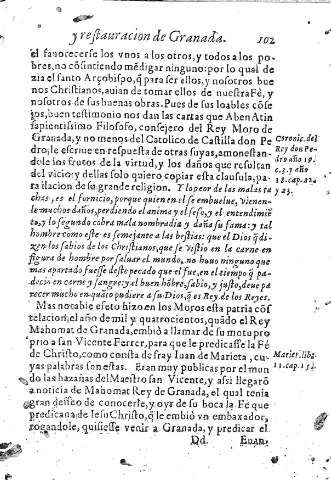 y restauracion de Granada. 102
el fauorecerse los vnos a los otros, y todos a los po-
bres, no cõsintiendo mẽdigar ninguno: por lo qual de
zia el santo Arçobispo, q̃ para ser ellos, y nosotros bue
nos Christianos, auian de tomar ellos de nuestra Fé, y
nosotros de sus buenas obras. Pues de sus loables cõse
jos, buen testimonio nos dan las cartas que Aben Atin
sapientissimo Filosofo, consejero del Rey Moro de
Granada, y no menos del Catolico de Castilla don Pe
dro, le escriue en respuesta de otras suyas, amonestan-
dole los frutos de la virtud, y los daños que resultan
del vicio: y dellas solo quiero copiar esta clausula, pa-
ra ilacion de su grande religion. Y lo peor de las malas
chas, es el fornicio, porque quien en el se embuelue, vienen-
le muchos daños, perdiendo el anima y el seso, y el entendimiẽ
to, y lo segundo cobra mala nombradia y daña su fama: y tal
hombre como este es semejante a las bestias: que el Dios q̃ di-
zen los sabios de los Christianos, que se vistio en la carne en
figura de hombre por saluar el mundo, no houo ninguno que
mas apartado fuesse deste pecado que el fue, en el tiempo q̃ pa-
decio en carne y sangre: y el buen hõbre, sabio, y justo, deue pa
recer mucho en quãto pudiere a su Dios, q̃ es Rey de los Reyes.
Coronic. del
Rey don Pe-
dro año 19.
y 23.
Mas notable es
Moros esta patria cõs
telacion, el año de mil y quatrocientos, quãdo el Rey
Mahomat de Granada, embió a llamar de su motu pro
prio a san Vicente Ferrer, para que le predicasse la Fé
de Christo, como consta de fray Iuan de Marieta, cu-
yas palabras son estas. Eran muy publicas por el mun
do las hazañas del Maestro san Vicente, y assi llegarõ
a noticia de Mahomat Rey de Granada, el qual tenia
gran desseo de conocerle, y oyr de su boca la Fé que
predicaua de Iesu Christo, q̃ le embió vn embaxador,
rogandole, quisiesse venir a Granada, y predicar el
Dd. Euan-